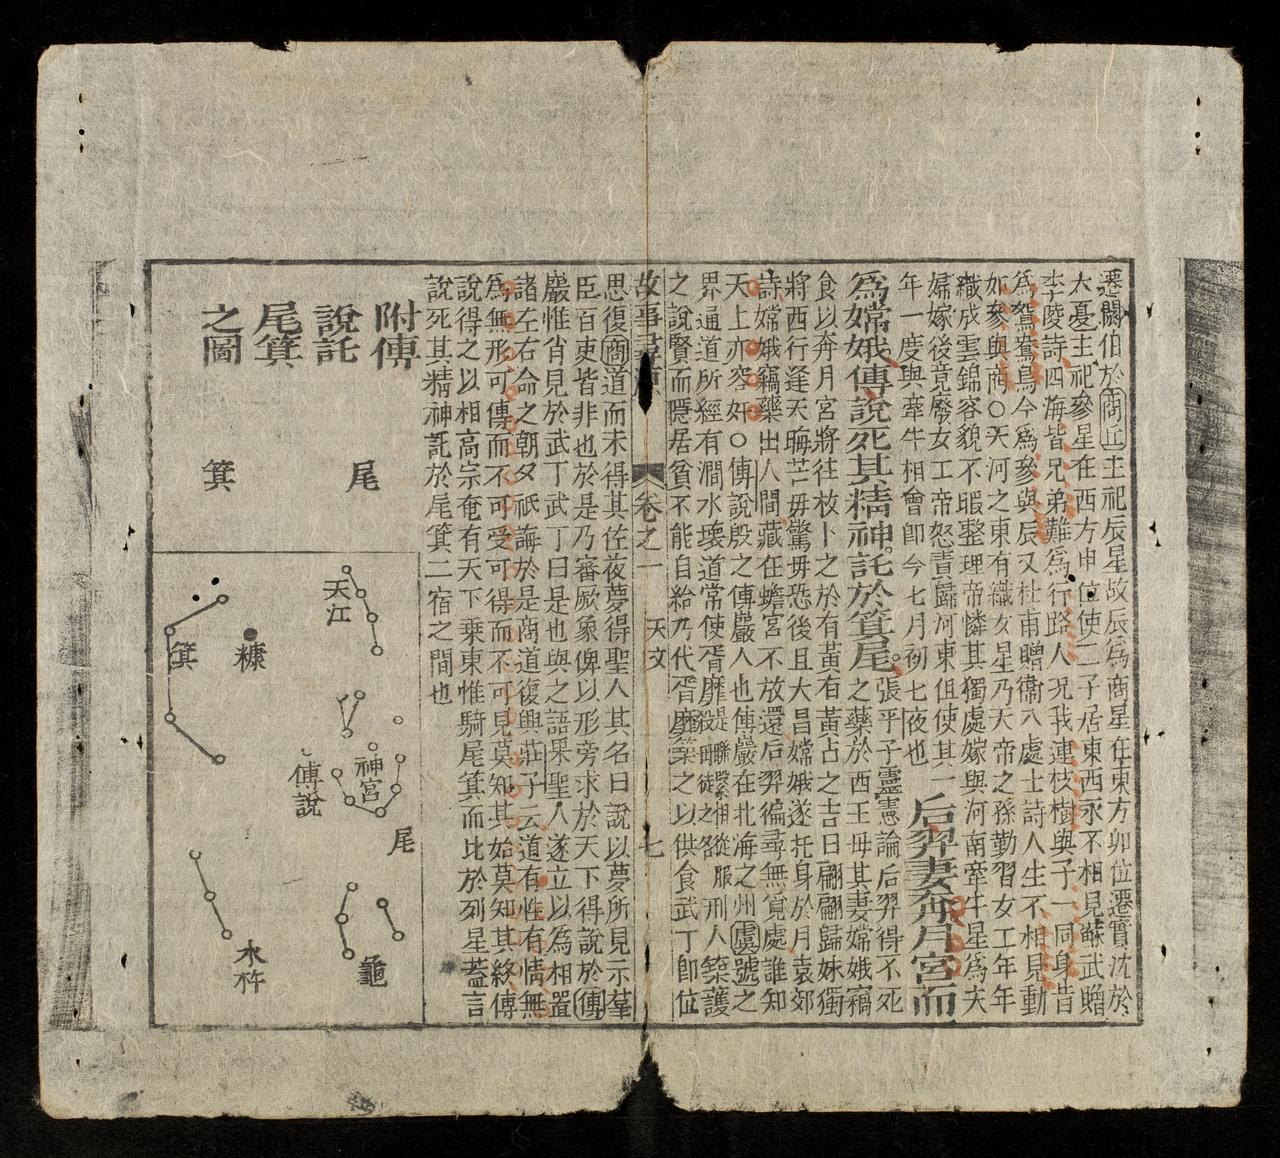 遷閼伯於商丘主祀辰星故辰為商星在東方卯位遷實沈於
大憂主祀參星在西方申位使二子居東西永不相見蘇武贈
李陵詩四海皆兄弟難為行路人况我連枝樹與子一同身昔
為鴛鴦鳥今為參與辰又杜甫贈衞八處士詩人生不相見動
如參與商○天河之東有織女星乃天帝之孫勤習女工年年
織成雲錦容貌不暇整理帝憐其獨處嫁與河南牽牛星為夫
婦嫁後竟廢女工帝怒責歸河東但使其一
年一度與牽牛相會即今七月初七夜也 后羿妻奔月宮而
為嫦娥傳說死其精神託於箕尾 張平子靈憲論后羿得不死
之藥於西王母其妻嫦娥竊
食以奔月宮將往枚卜之於有黃有黃占之吉曰翩翩歸妹獨
將西行逢天晦芒毋驚毋恐後且大昌嫦娥遂托身於月袁郊
詩嫦娥竊藥出人間藏在蟾宮不放還后羿徧尋無覓處誰知
天上亦容奸○傅說殷之傅巖人也傅巖在北海之州虞虢之
界通道所經有澗水壞道常使胥靡役聯繫相從服刑人築護
之說賢而隱居貧不能自給乃代胥靡築之以供食武丁即位
故事尋源 卷之一 天文 七
思復商道而未得其佐夜夢得聖人其名曰說以夢所見示羣
臣百吏皆非也於是乃審厥象俾以形旁求於天下得說於傅
巖惟肖見於武丁武丁曰是也與之語果聖人遂立以為相置
諸左右命之朝夕祇誨於是商道復興莊子云道有性有情無
為無形可傳而不可受可得而不可見莫知其始莫知其終傅
說得之以相高宗奄有天下乘東惟騎尾箕而比於列星蓋言
說死其精神託於尾箕二宿之間也
附傅
說託
尾箕
之圖
尾
箕
天江
神宮
尾
傅說
龜
糠
箕
木杵